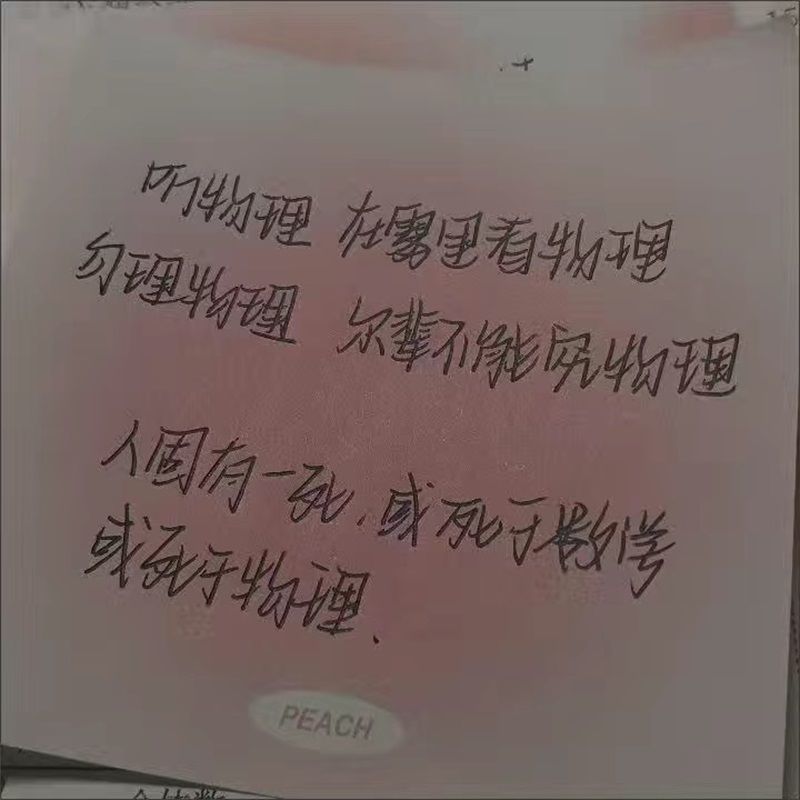 听物理 在雾里看物理
勿理物理 尔辈不能究物理
人固有一死,或死于数学
或死于物理.
PEACH